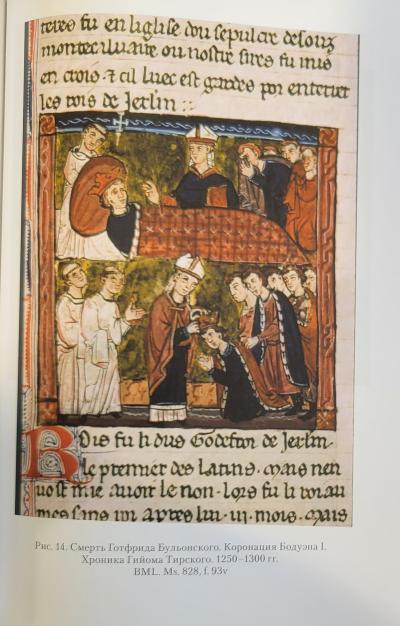 teres fu en liglise dou sepulcre desouz
monte caluaire ou nostre sires fu mis
en crois · et cil lues est gardes por enterrer
les rois de Jerlm ::
Rois fu li dus Godefroi de Jerlm
le premier des latins · mais nen
uost mie auoir le non · lors fu li roiau
mes sans roi apres lui · iii · mois · mais
Рис. 14. Смерть Готфрида Бульонского. Коронация Бодуэна I.
Хроника Гийома Тирского. 1250–1300 гг.
BML. Ms. 828, f. 93v